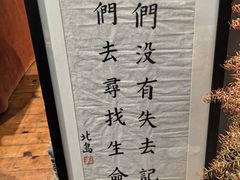 們没有失去記
們去尋找生命
北島